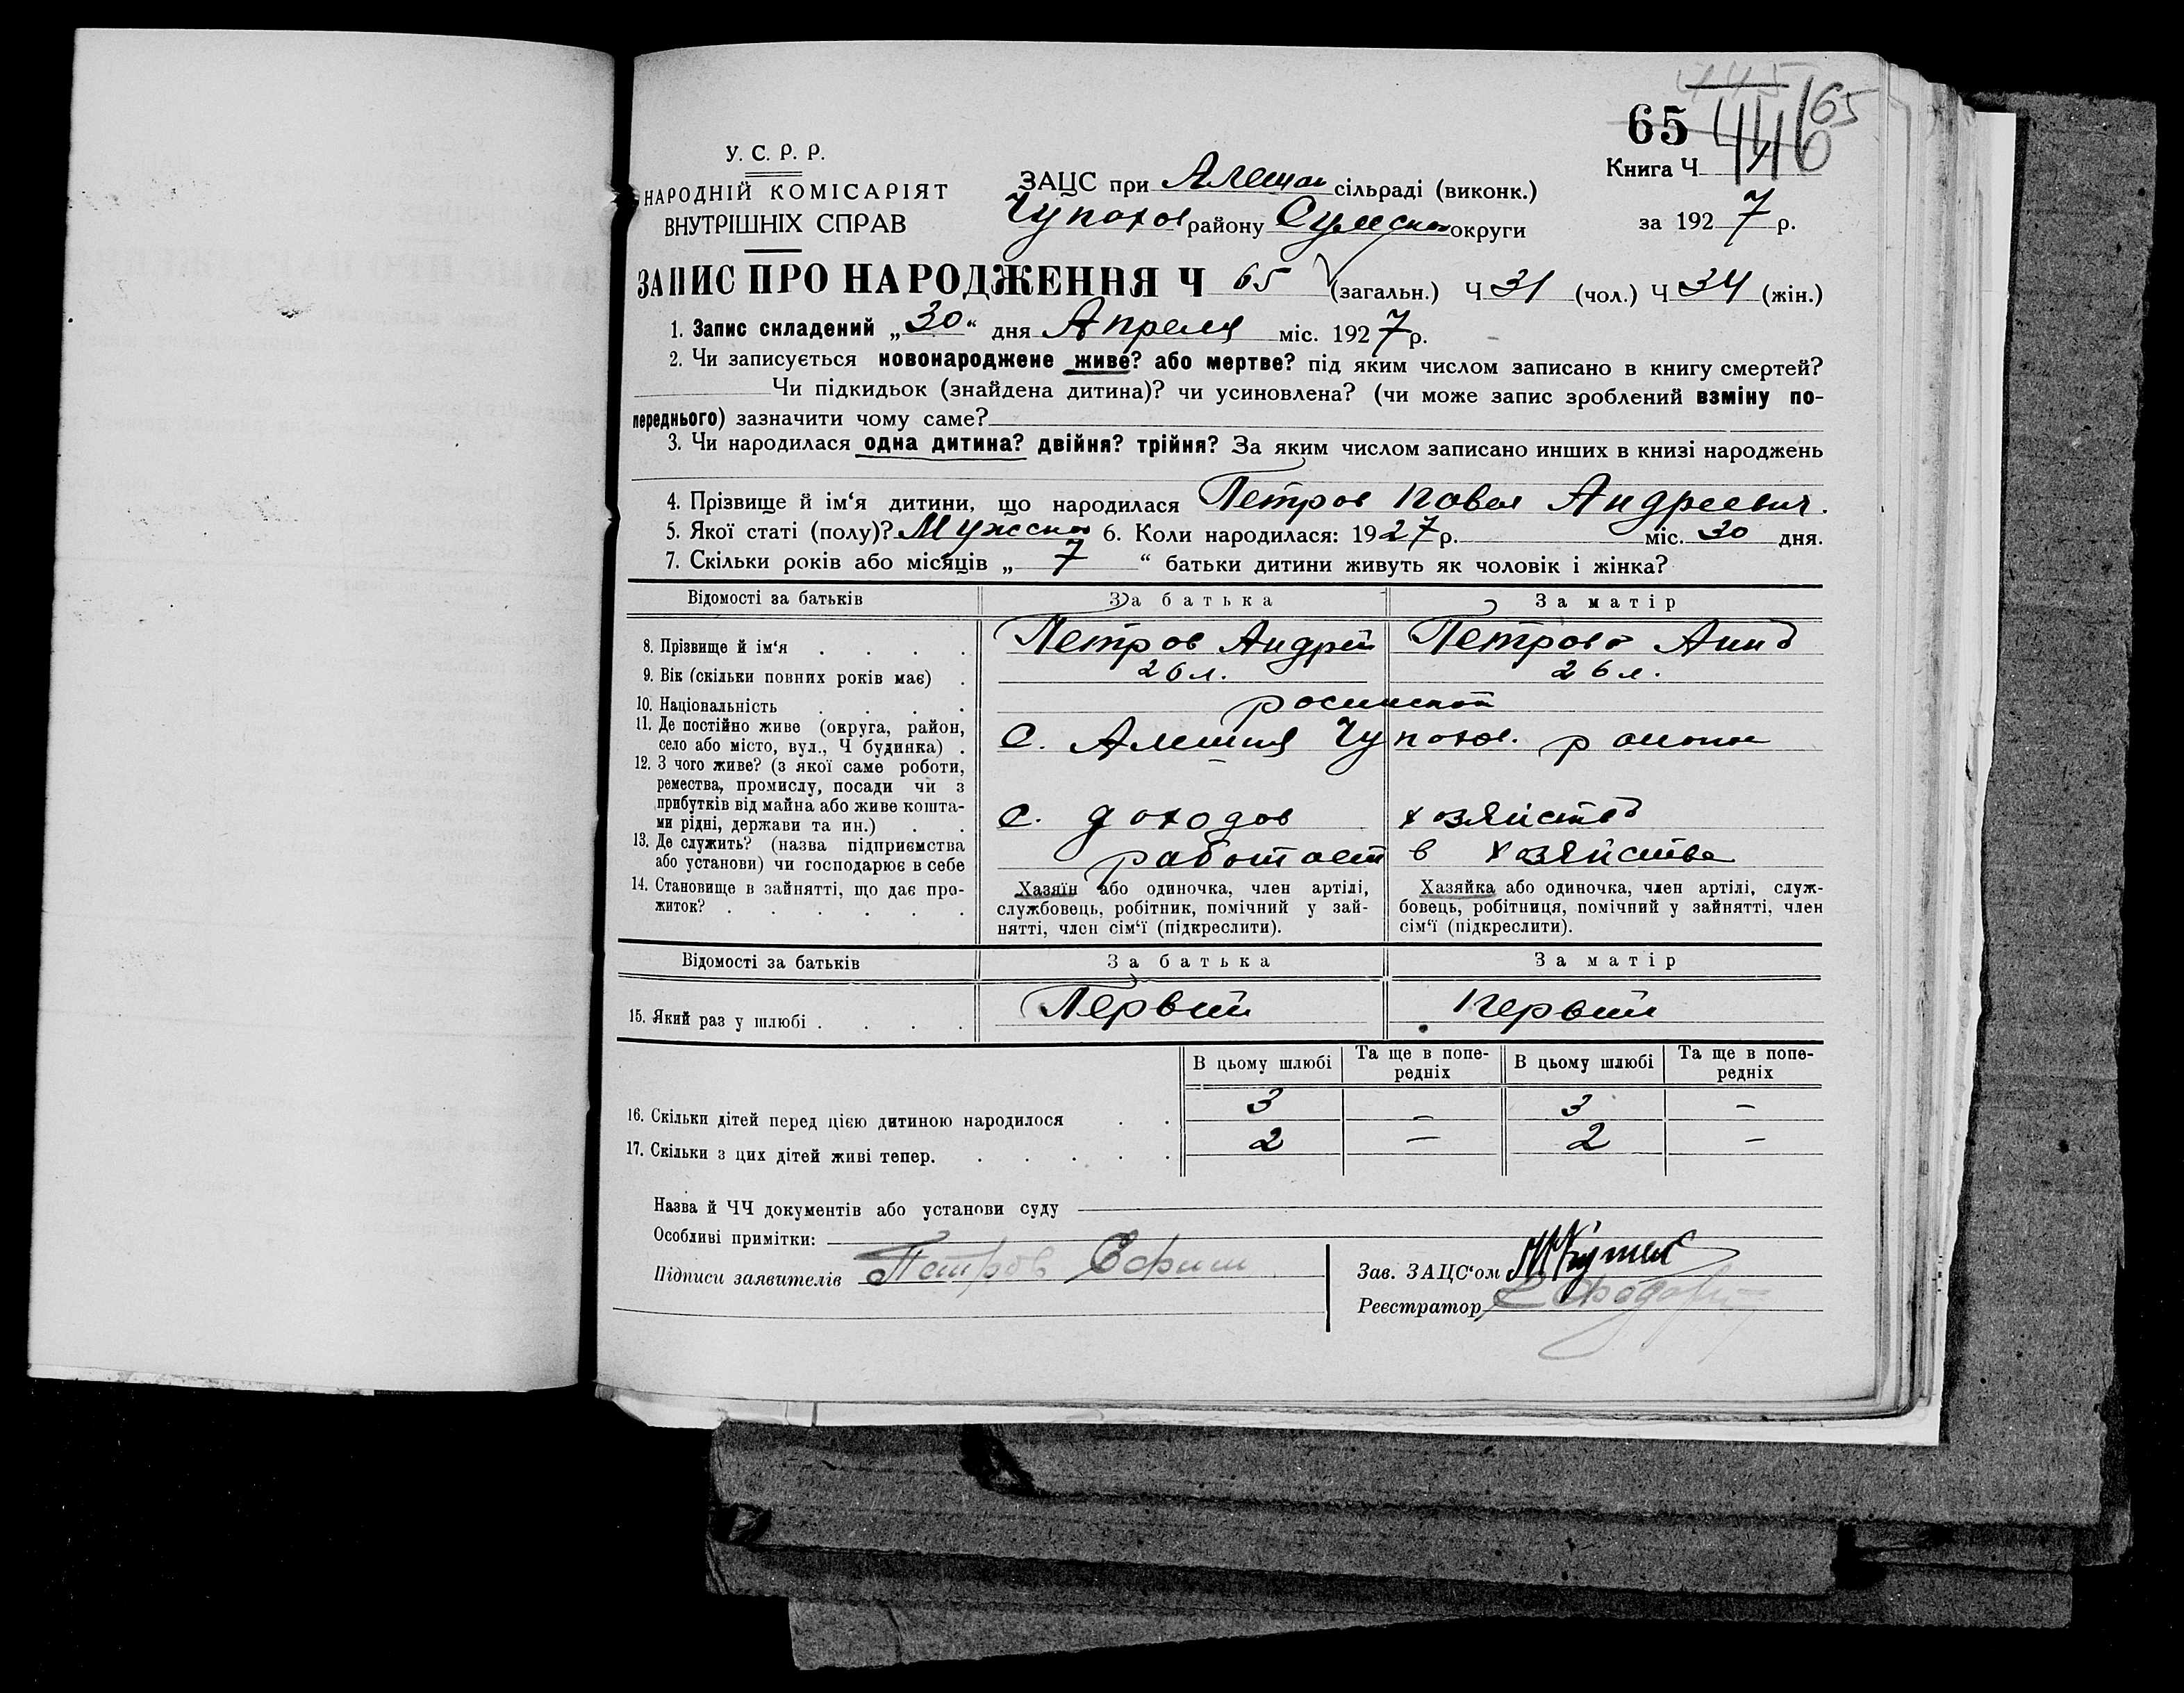 445
65 446 65
У. С. Р. Р.
НАРОДНІЙ КОМІСАРІЯТ
ВНУТРІШНІХ СПРАВ
ЗАЦС при Алешан сільраді (виконк.)
Чупахов району Сумской округи
Книга Ч 1
за 1927 р.
ЗАПИС ПРО НАРОДЖЕННЯ Ч 65 (загальн.) Ч 31 (чол.) Ч 34 (жін.)
1. Запис складений „30“ дня Апреля міс. 1927 р.
2. Чи записується новонароджене живе? або мертве? під яким числом записано в книгу смертей?
Чи підкидьок (знайдена дитина)? чи усиновлена? (чи може запис зроблений взміну по-
переднього) зазначити чому саме?
3. Чи народилася одна дитина? двійня? трійня? За яким числом записано инших в книзі народжень
4. Прізвище й ім‘я дитини, що народилася Петров Павел Андреевич.
5. Якої статі (полу)? Мужской 6. Коли народилася: 1927 р. міс. 30 дня.
7. Скільки років або місяців „ 7 “ батьки дитини живуть як чоловік і жінка?
Відомості за батьків За батька За матір
8. Прізвище й ім‘я . . . . Петров Андрей Петрова Анна
9. Вік (скільки повних років має) . 26 л. 26 л.
10. Національність . . . .
11. Де постійно живе (округа, район,
село або місто, вул., Ч будинка) . С. Алешня Чупахов. района
12. З чого живе? (з якої саме роботи,
ремества, промислу, посади чи з
прибутків від майна або живе кошта-
ми рідні, держави та ин.) . . С. доходов хозяйства
13. Де служить? (назва підприємства
або установи) чи господарює в себе работает в хозяйстве
14. Становище в зайнятті, що дає про-
житок? . . . . . .
Хазяїн або одиночка, член артілі,
службовець, робітник, помічний у зай-
нятті, член сім‘ї (підкреслити).
Хазяйка або одиночка, член артілі, служ-
бовець, робітниця, помічний у зайнятті, член
сім‘ї (підкреслити).
Відомості за батьків За батька За матір
15. Який раз у шлюбі . . . . Первый Первый
В цьому шлюбі Та ще в попе-
редніх В цьому шлюбі Та ще в попе-
редніх
16. Скільки дітей перед цією дитиною народилося . . 3 – 3 –
17. Скільки з цих дітей живі тепер. . . . . . 2 – 2 –
Назва й ЧЧ документів або установи суду
Особливі примітки:
Підписи заявителів Петров Ефим
Зав. ЗАЦС‘ом
Реєстратор